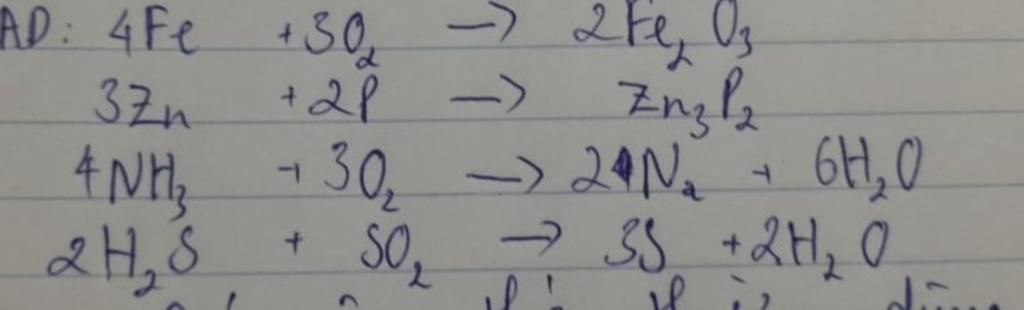 AD: 4Fe + 3O₂ → 2Fe₂O₃
3Zn + 2P → Zn₃P₂
4NH₃ + 3O₂ → 2N₂ + 6H₂O
2H₂S + SO₂ → 3S + 2H₂O